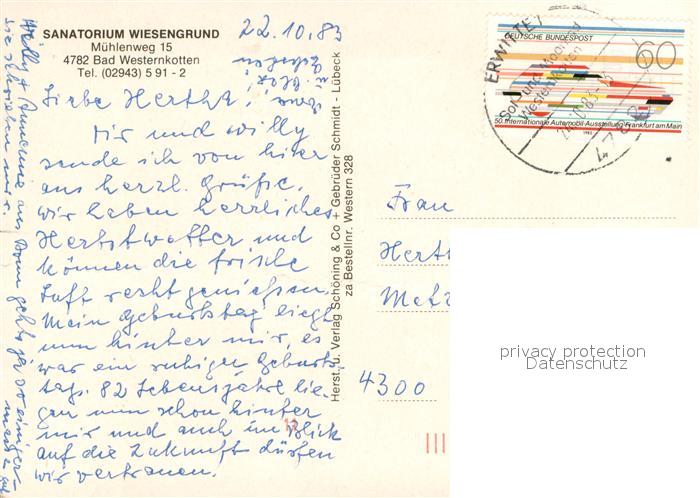 SANATORIUM WIESENGRUND
Mühlenweg 15
4782 Bad Westernkotten
Tel. (02943) 5 91 - 2
22.10.83
Liebe Hertha!
Dir und Willy
sende ich von hier
aus herzl. Grüße.
Wir haben herrliches
Herbstwetter und
können die frische
Luft recht genießen.
Mein Geburtstag liegt
nun hinter mir, es
war ein ruhiger Geburts-
tag. 82 Lebensjahre lie-
gen nun schon hinter
mir und auch im Blick
auf die Zukunft dürfen
wir vertrauen.
Willy + Annemie aus Bonn geht's ja so einiger-
sie schrieben mir.
Herst. u. Verlag Schöning & Co + Gebrüder Schmidt - Lübeck
zu Bestellnr. Western 328
DEUTSCHE BUNDESPOST
60
50. Internationale Automobil-Ausstellung Frankfurt am Main
1983
ERWITTE
Sol- und Moorbad
Westernkotten
Frau
Herth
Metz
4300
privacy protection
Datenschutz